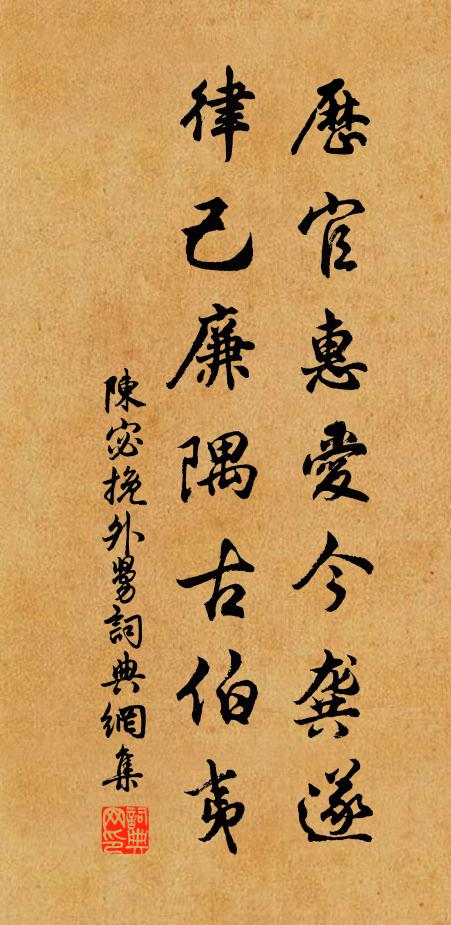 歷官惠愛今龔遂
律己廉隅古伯夷
陳宓挽外舅詞典網集
詞典网印